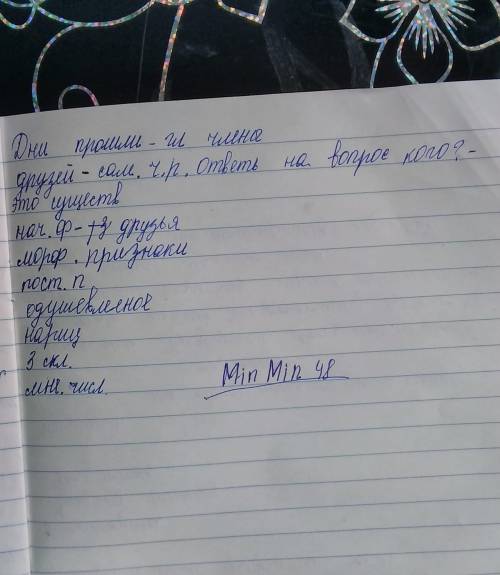 Дни прошли - гл члена
друзей - сам. ч.р. ответь на вопрос кого? -
это существ
нач. ф - друзья
морф. признаки
пост. п
одушевленное
нариц
3 скл.
мн. числ.
Min Min 48